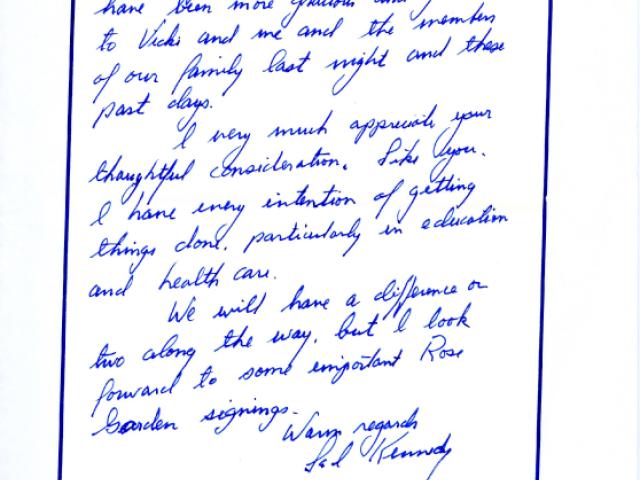 have been more gracious
to Vicki and me and the members
of our family last night and these
past days.
I very much appreciate your
thoughtful consideration. Like you,
I have every intention of getting
things done, particularly in education
and health care.
We will have a difference or
two along the way, but I look
forward to some important Rose
Garden signings.
Warm regards
Ted Kennedy